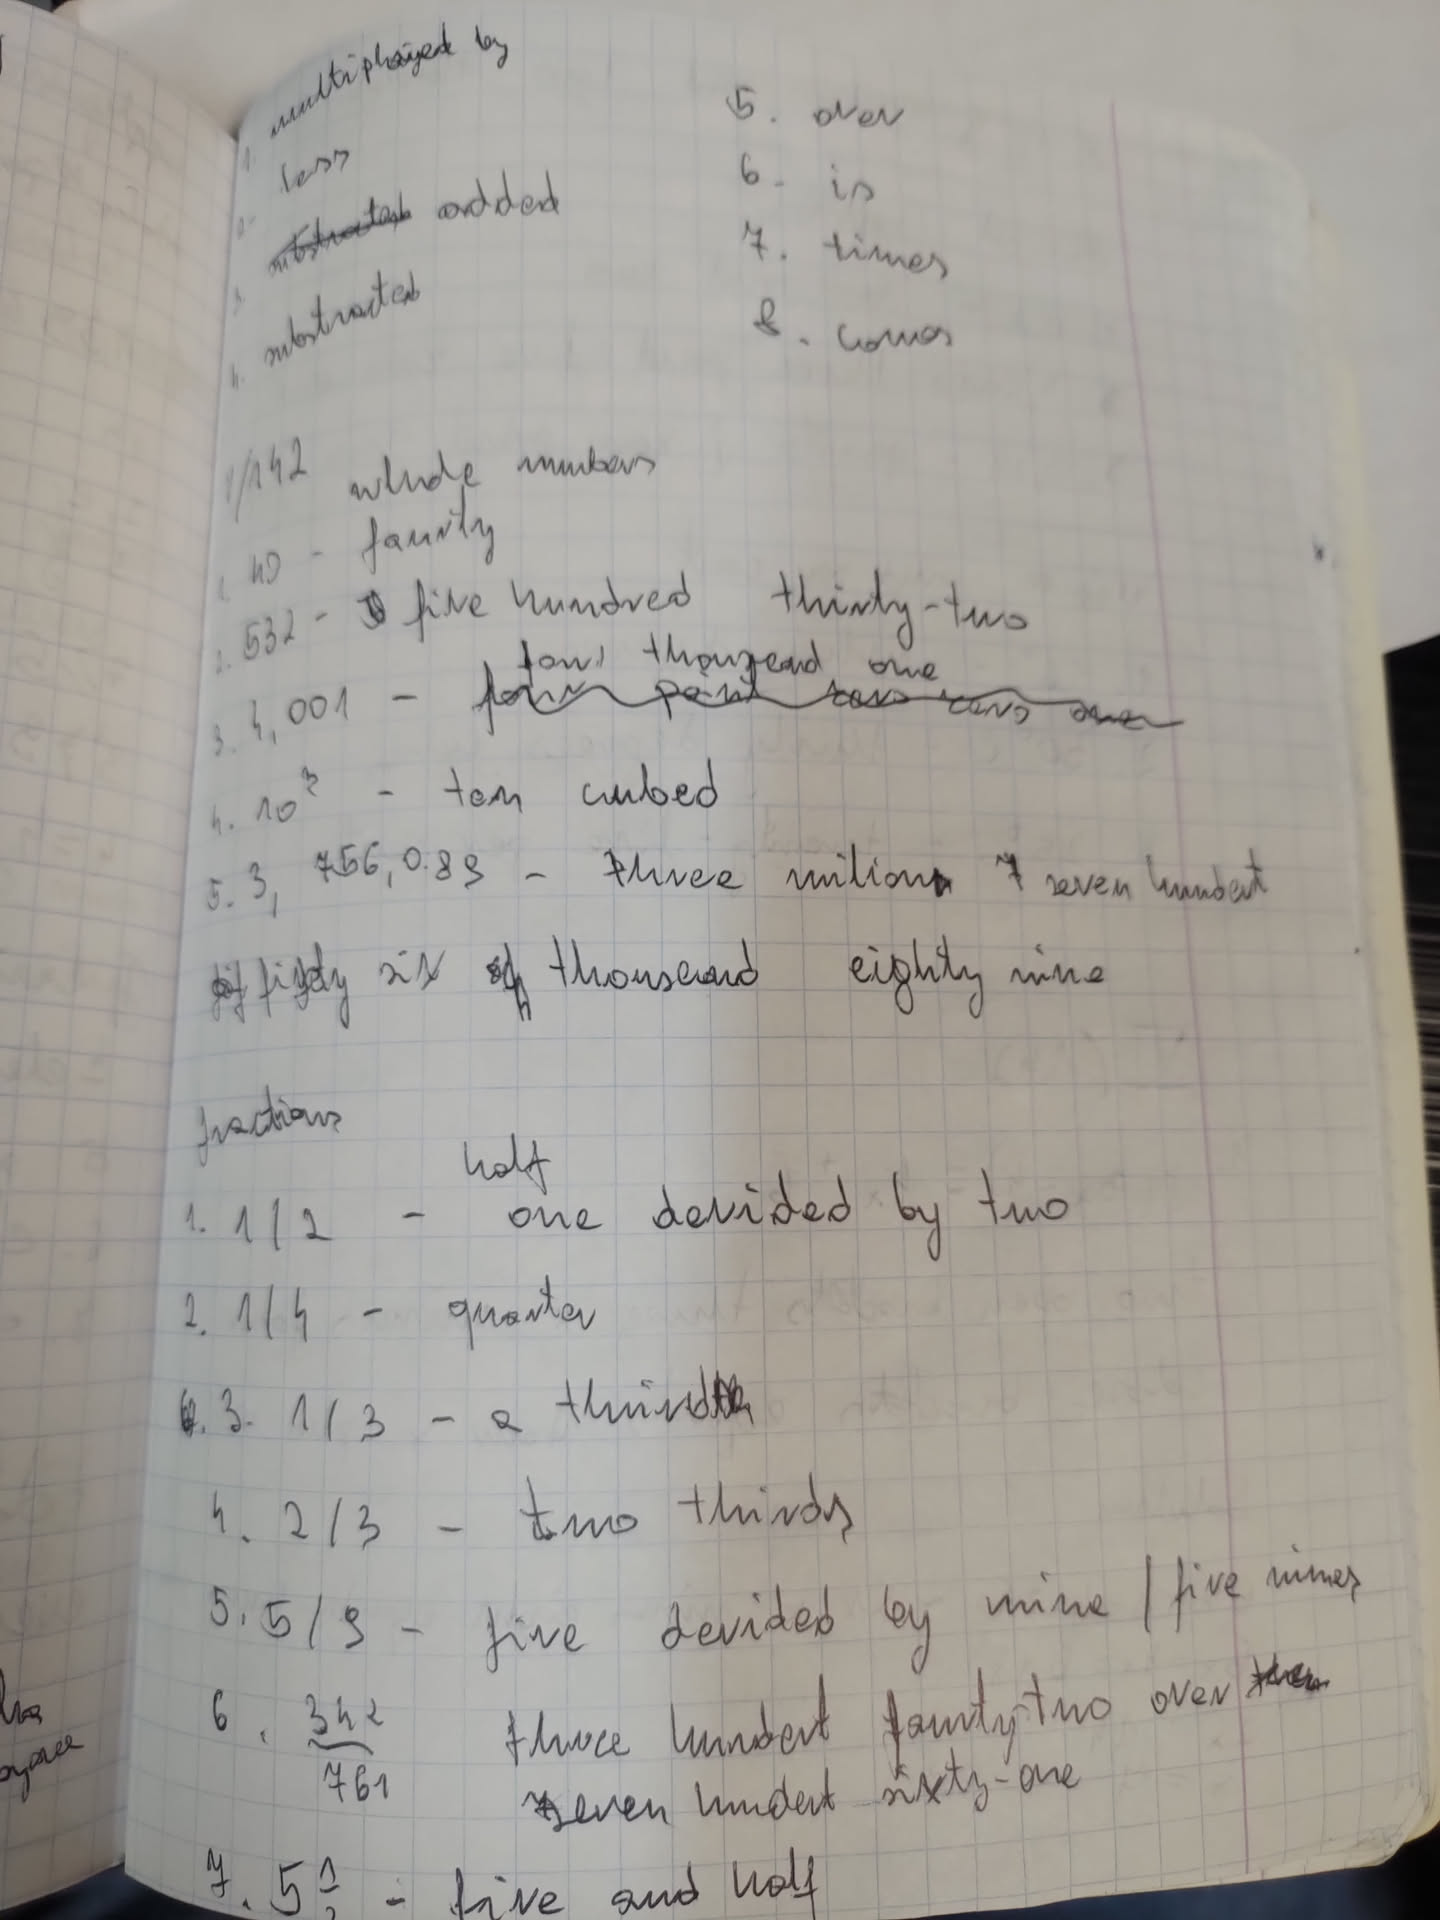 1. multiplayed by
2. less
3. added
4. substracted
5. over
6. is
7. times
8. comes
1/142 whole numbers
1. 40 - faurty
2. 532 - five hundred thirty-two
four thousend one
3. 4,001 - four point zero zero one
4. 10³ - ten cubed
5. 3, 756, 0.89 - three milion 7 seven hundert
fifty six thousend eighty nine
fractions
half
1. 1/2 - one devided by two
2. 1/4 - quarter
3. 1/3 - a third
4. 2/3 - two thirds
5. 5/9 - five devided by nine / five nines
6. 342 three hundert faurty-two over
761 seven hundert sixty-one
7. 5 1/2 - five and half